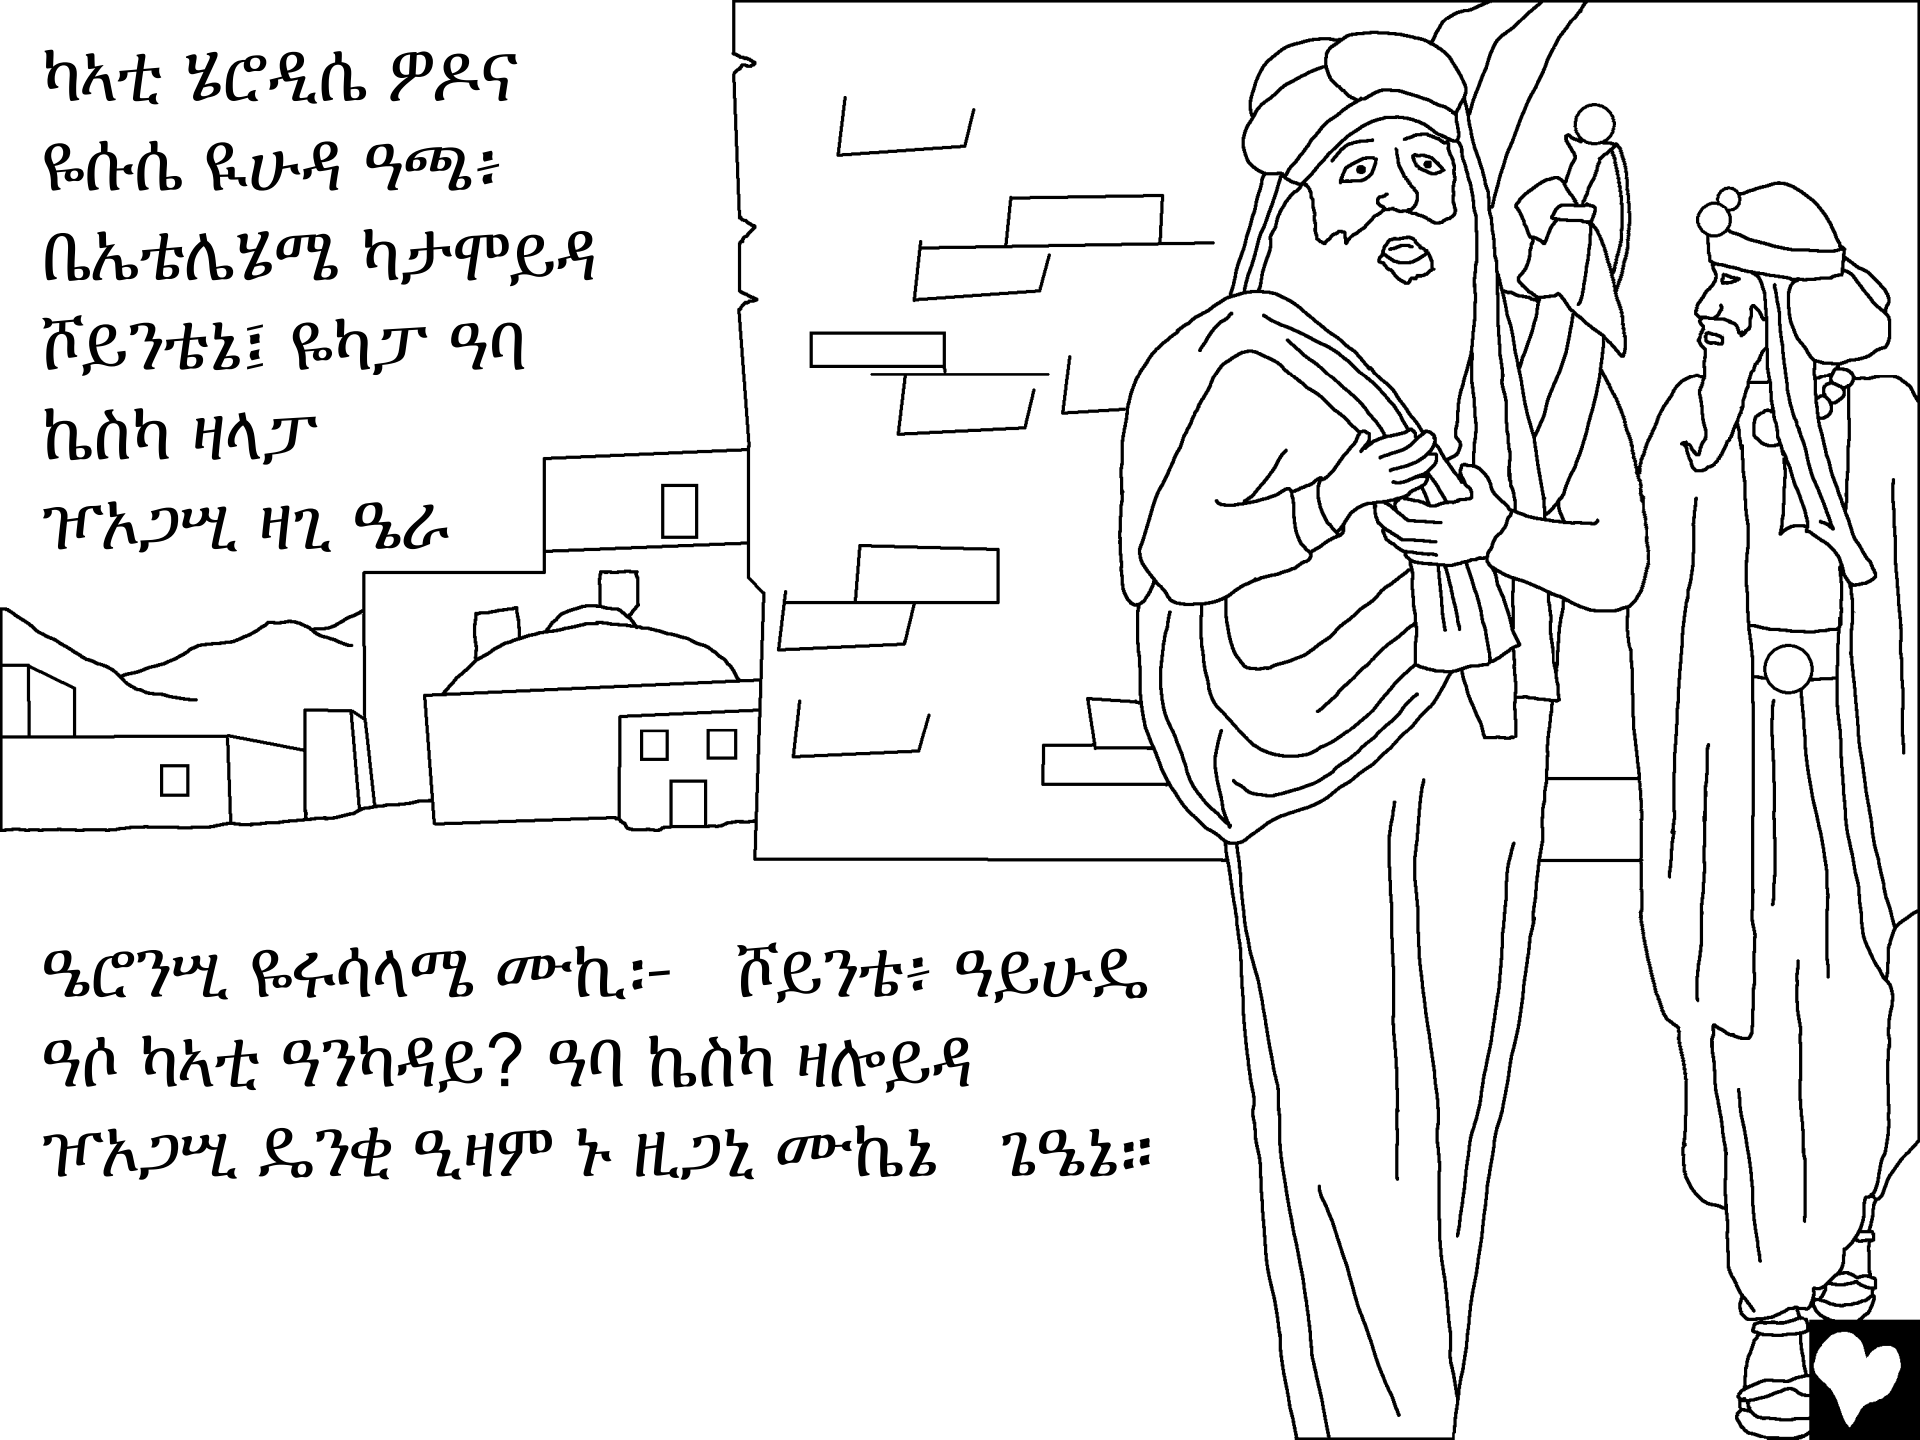 ካኣቲ ሄሮዲሴ ዎዶና
ዬሱሴ ዪሁዳ ዓጫ፥
ቤኤቴሌሄሜ ካታሞይዳ
ሾይንቴኔ፤ ዬካፓ ዓባ
ኬስካ ዛላፓ
ዦኣጋሢ ዛጊ ዔራ
ዔሮንሢ ዬሩሳላሜ ሙኪ፦ ሾይንቴ፥ ዓይሁዴ
ዓሶ ካኣቲ ዓንካዳይ? ዓባ ኬስካ ዛሎይዳ
ዦኣጋሢ ዴንቂ ዒዛም ኑ ዚጋኒ ሙኬኔ ጌዔኔ።